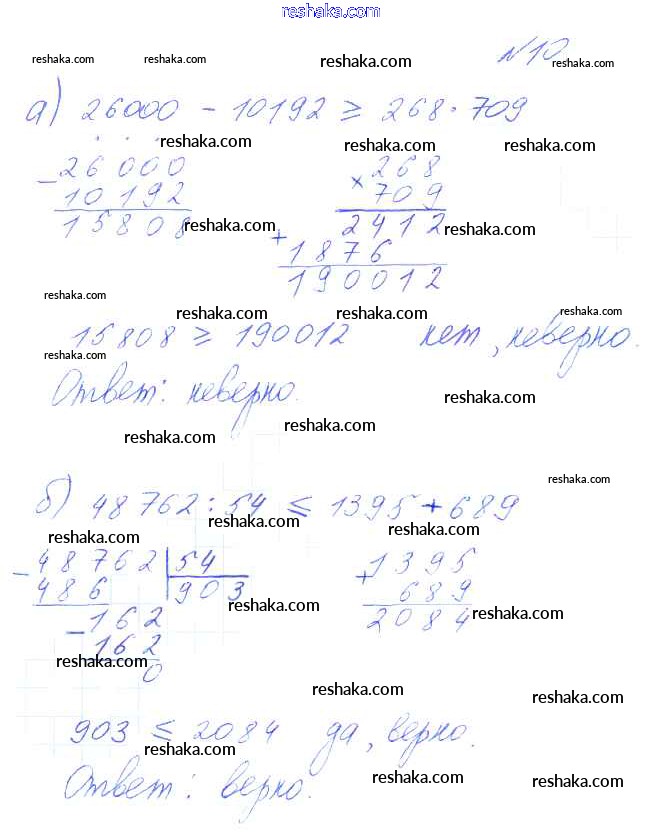 reshaka.com
№10
reshaka.com reshaka.com reshaka.com reshaka.com
а) 26000 - 10192 ≥ 268 · 709
reshaka.com reshaka.com
- 26000
10192
15808
reshaka.com
× 268
709
2412
+ 1876
190012
reshaka.com
reshaka.com reshaka.com reshaka.com
15808 ≥ 190012 нет, неверно.
reshaka.com
Ответ: неверно.
reshaka.com
reshaka.com reshaka.com
reshaka.com
б) 48762 : 54 ≤ 1395 + 689
reshaka.com reshaka.com reshaka.com
- 48762 | 54
486 903
- 162
162
0
+ 1395
689
2084
reshaka.com reshaka.com
reshaka.com reshaka.com
903 ≤ 2084 да, верно.
reshaka.com reshaka.com
reshaka.com reshaka.com
Ответ: верно.